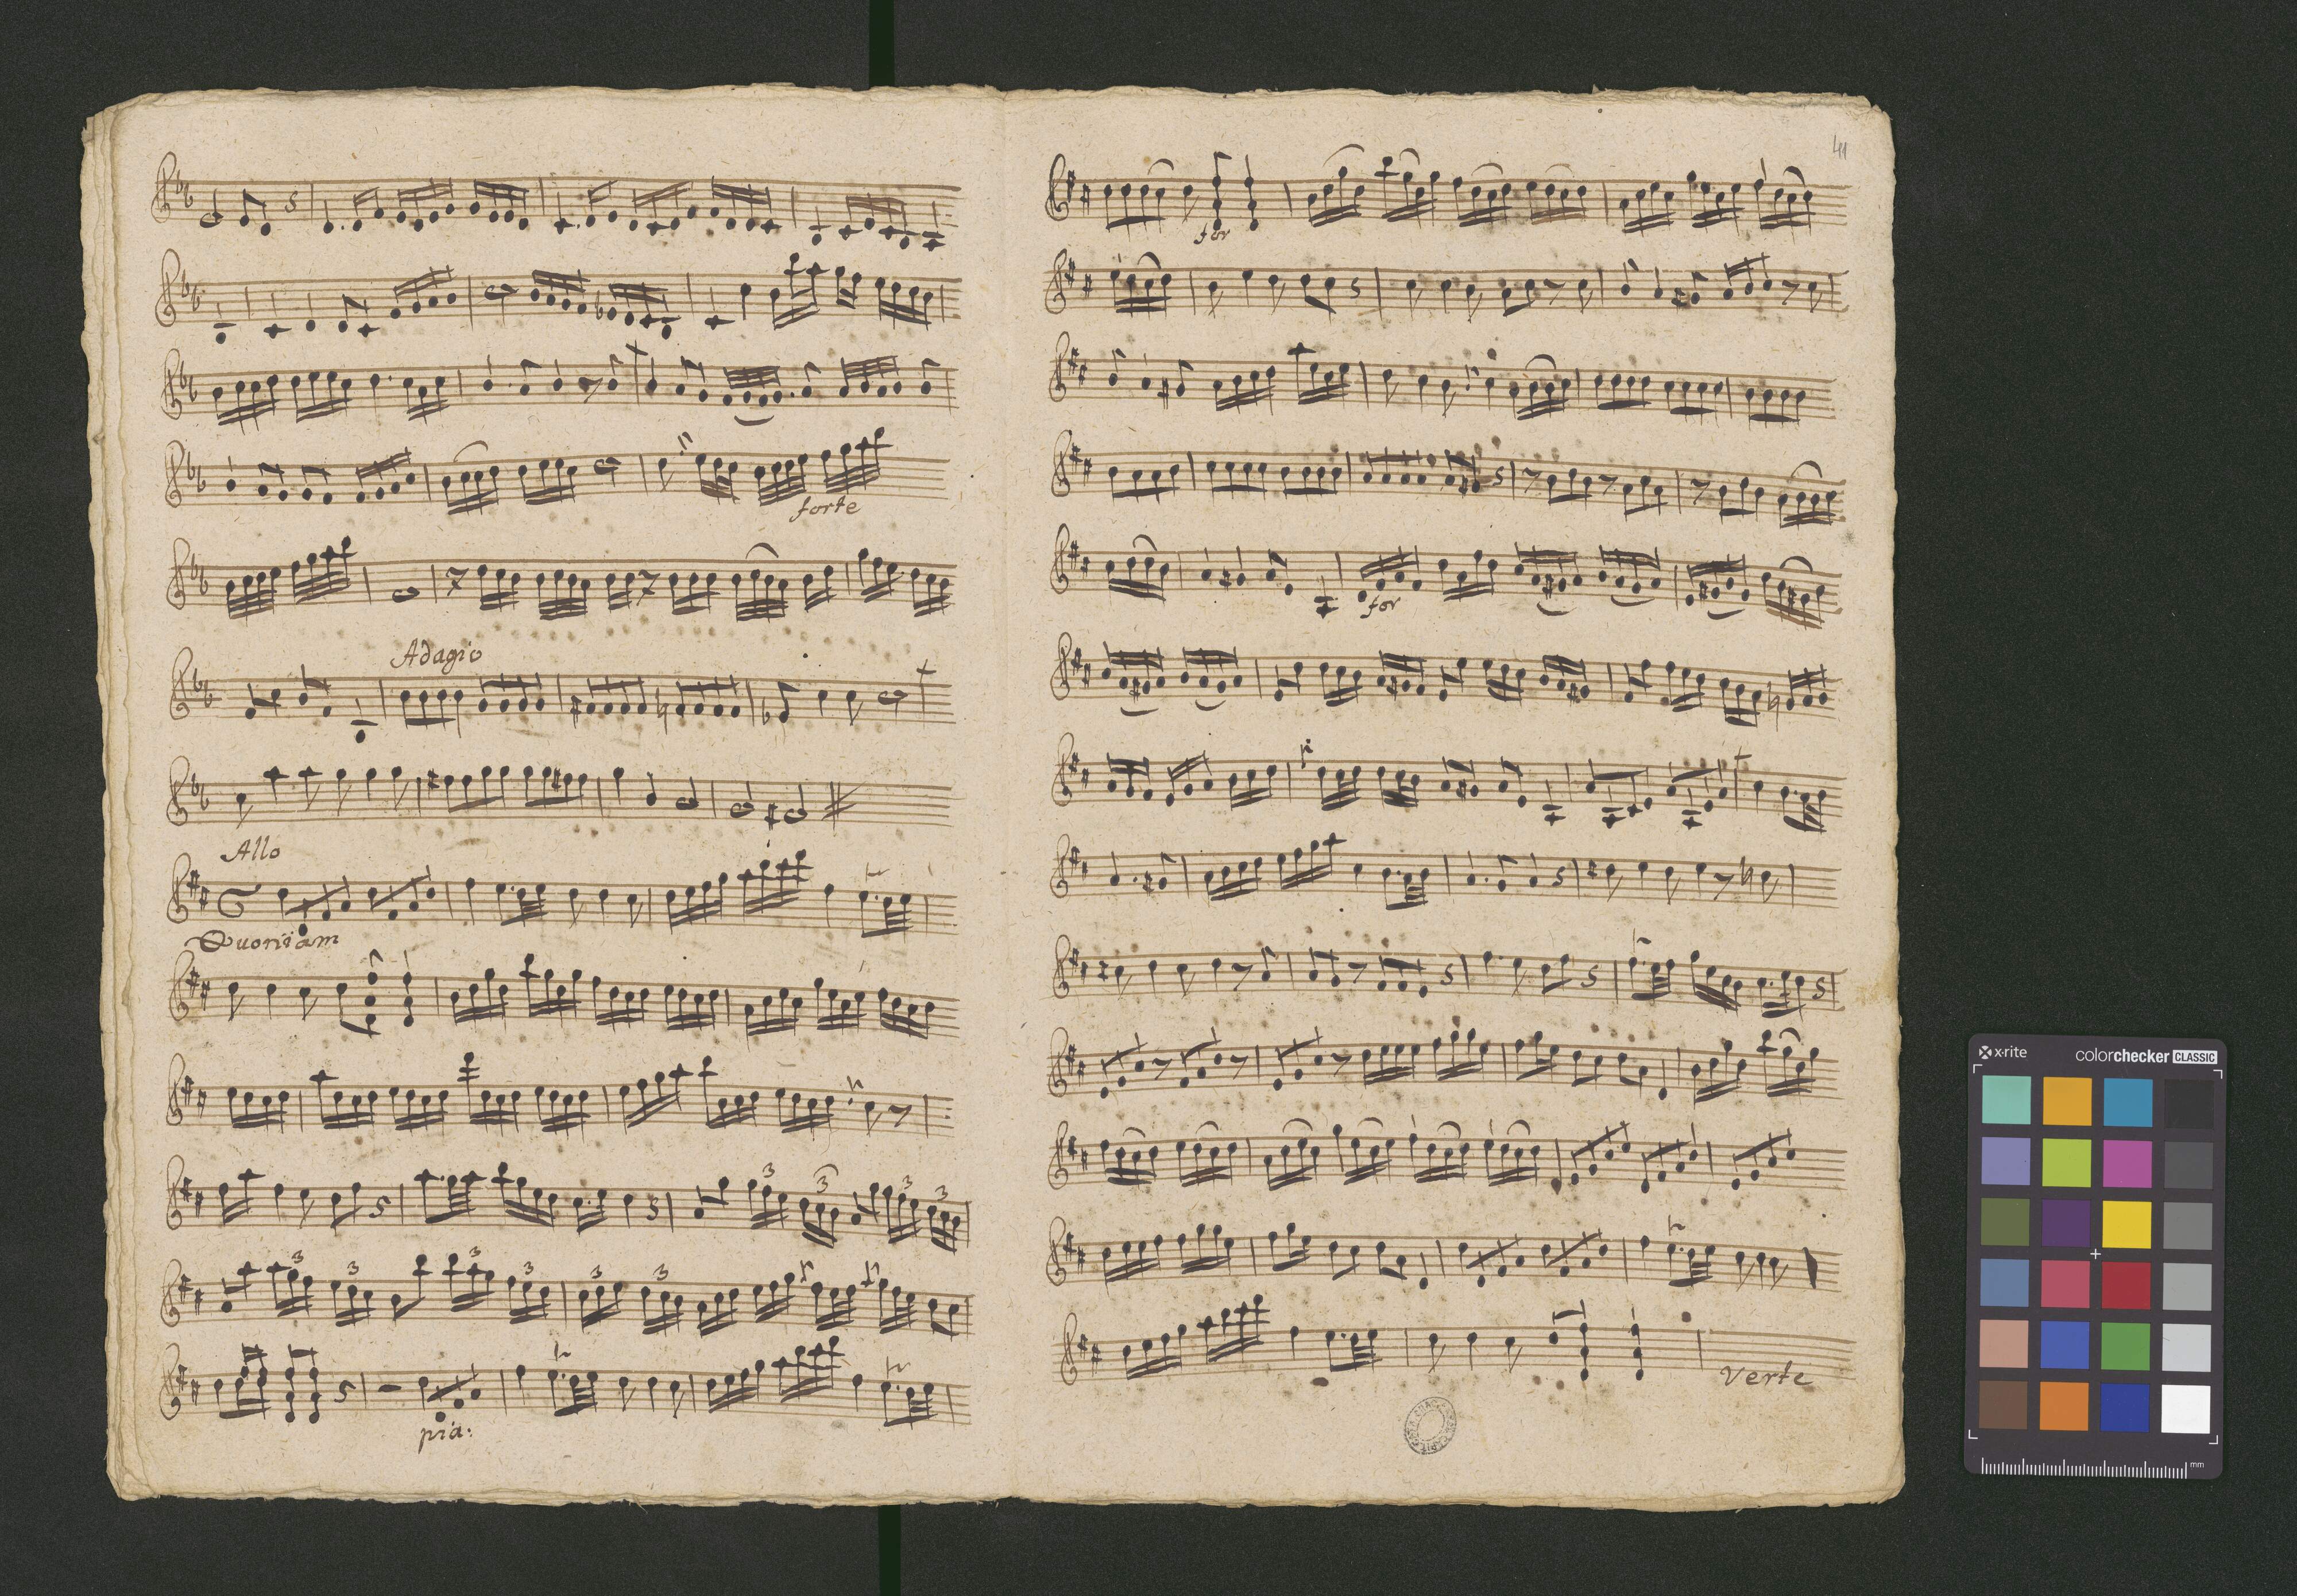 forte
Adagio
Allo
Quoniam
3 3 3 3
3 3 3 3 3 3
pia:
41
for
for
Verte
x-rite colorchecker CLASSIC
mm